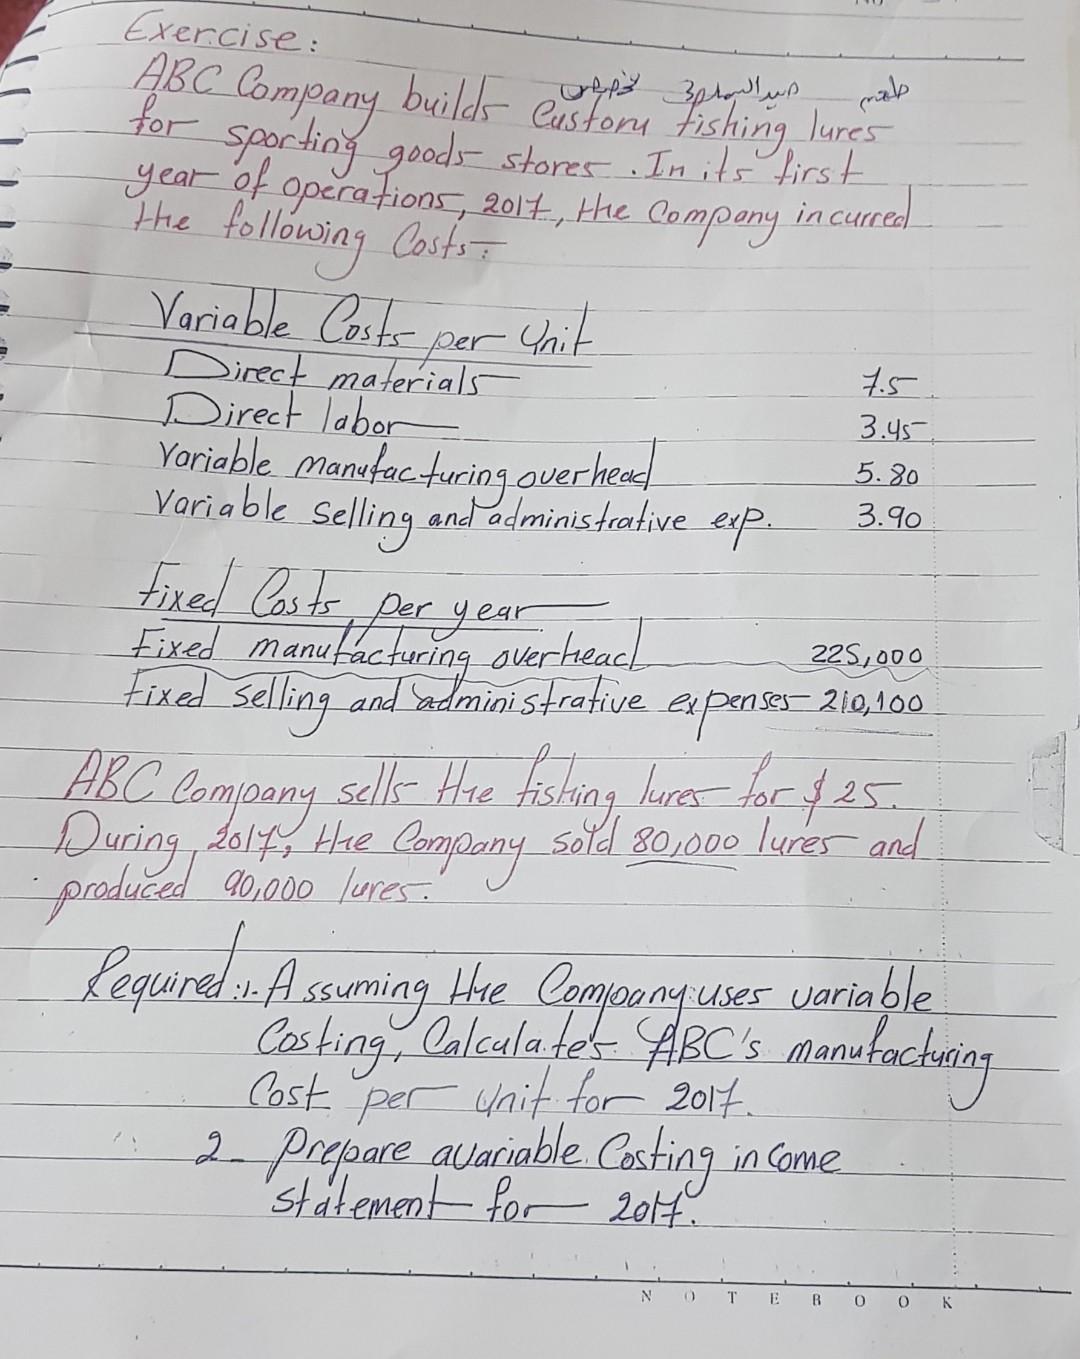 Exercise:
ABC Company builds Custom fishing lures
for sporting goods stores. In its first
year of operations, 2017, the Company incurred
the following Costs:
Variable Costs per Unit
Direct materials 7.5
Direct labor 3.45
Variable manufacturing overhead 5.80
Variable selling and administrative exp. 3.90
Fixed Costs per year
Fixed manufacturing overhead 225,000
Fixed selling and administrative expenses 210,100
ABC Company sells the fishing lures for $ 25.
During 2017, the Company sold 80,000 lures and
produced 90,000 lures.
Required: 1. Assuming the Company uses variable
Costing, Calculate's ABC's manufacturing
Cost per Unit for 2017.
2- Prepare a variable Costing income
statement for 2017.
NOTEBOOK